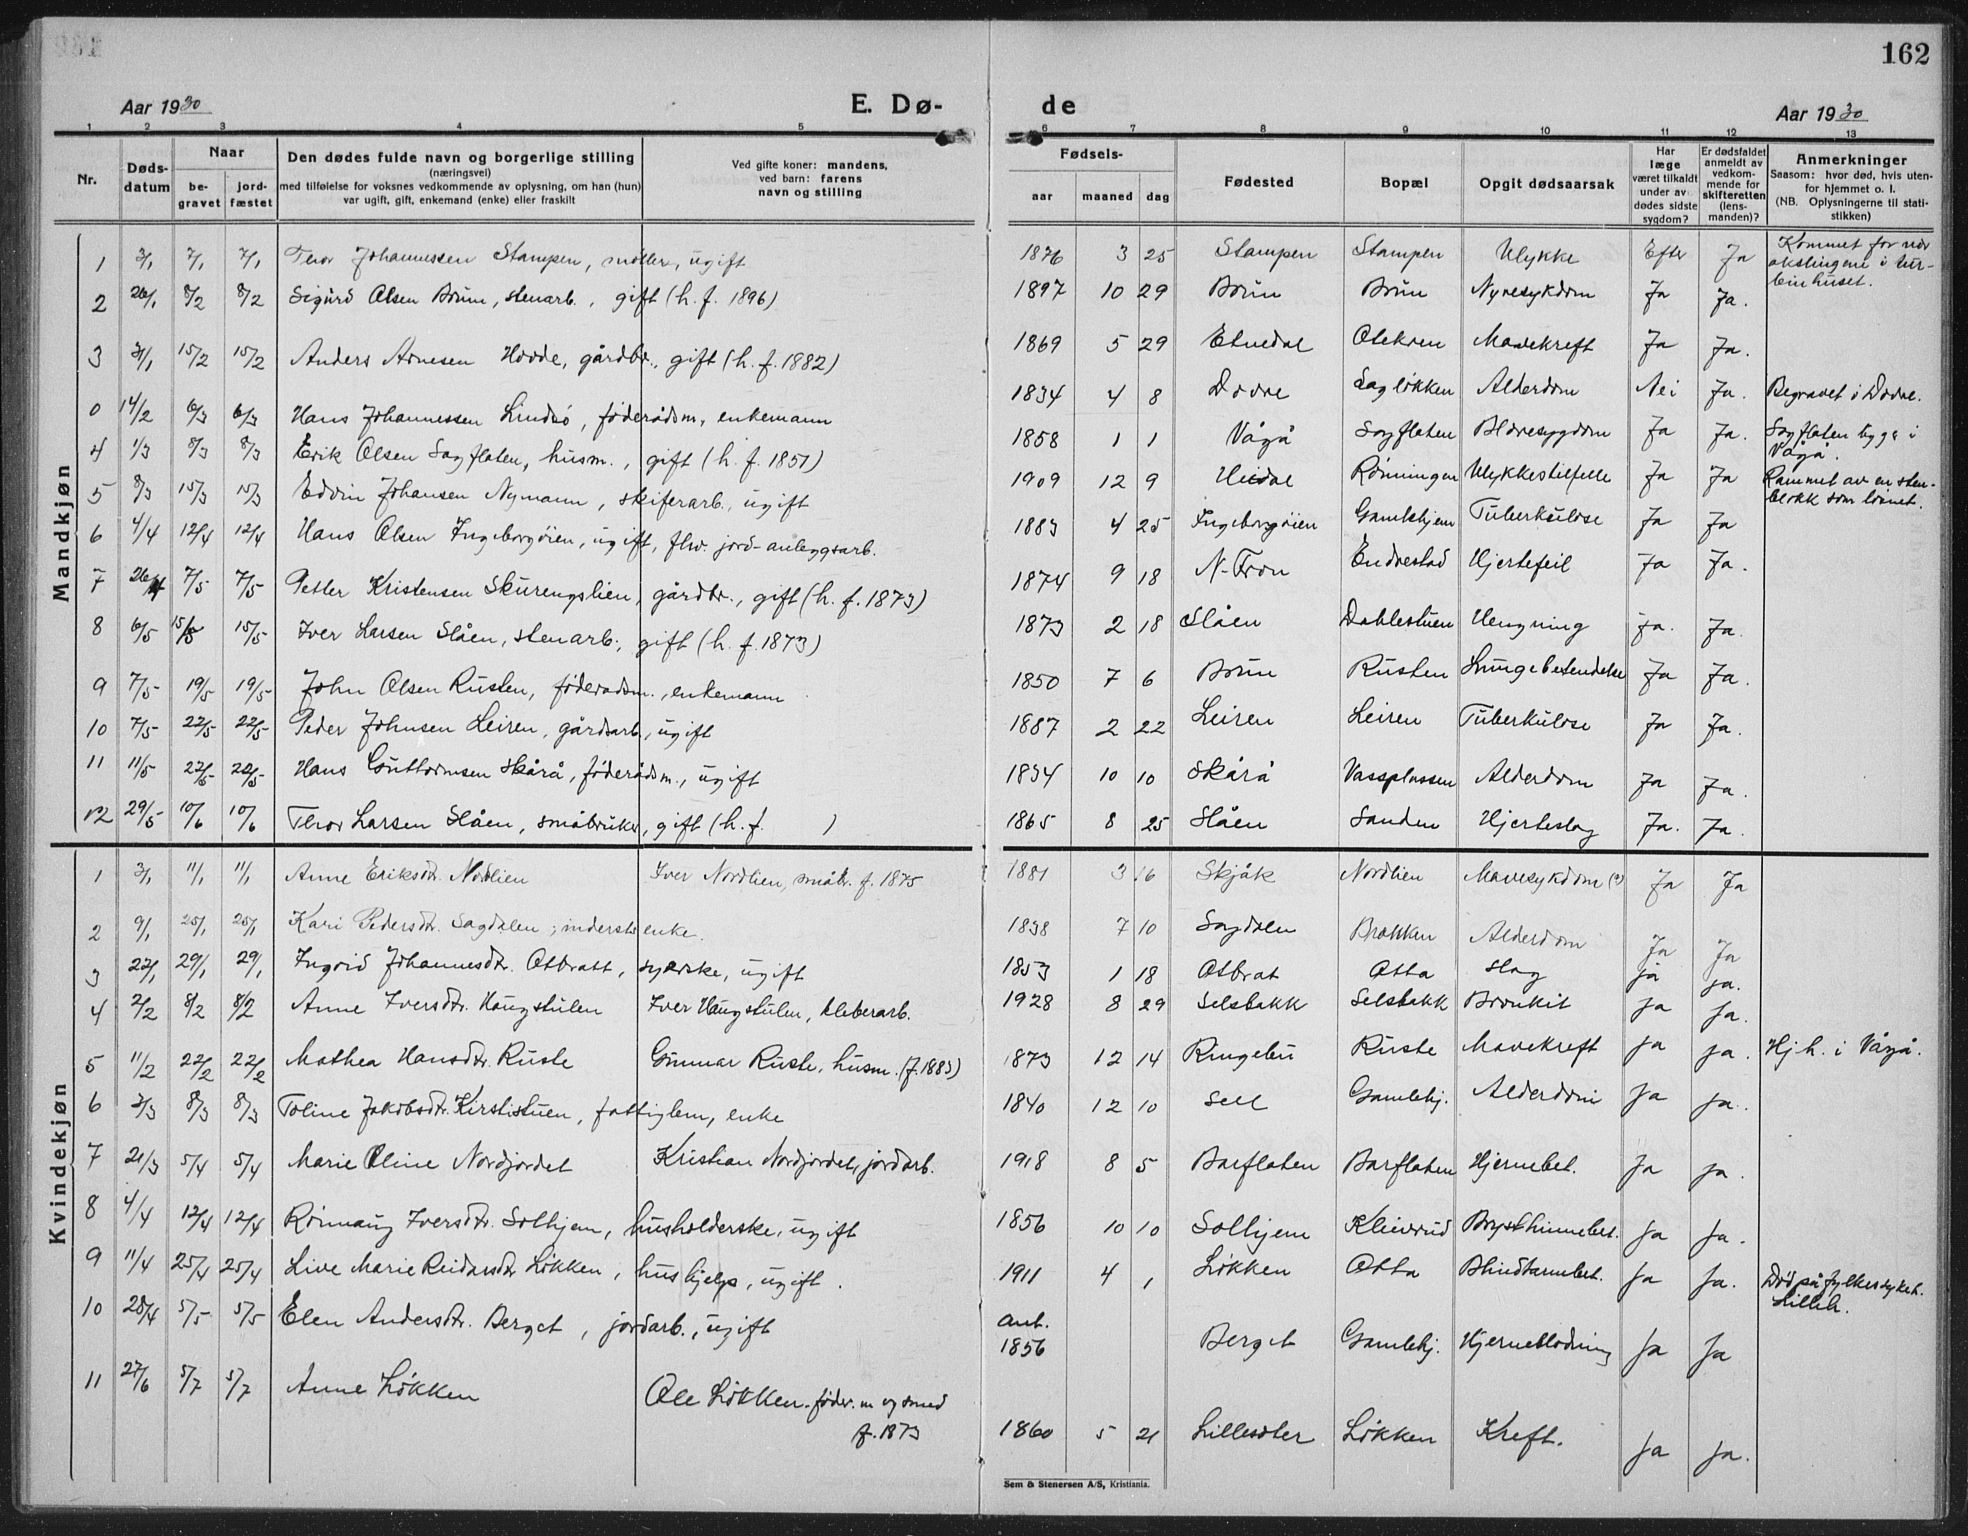 162
Aar 1930 E. Dø- de Aar 1930
1 2 3 4 5 6 7 8 9 10 11 12 13
Nr. Døds-datum Naar be-gravet jord-fæstet Den dødes fulde navn og borgerlige stilling (næringsvei) med tilføielse for voksnes vedkommende av oplysning, om han (hun) var ugift, gift, enkemand (enke) eller fraskilt Ved gifte koner: mandens, ved barn: farens navn og stilling Fødsels- aar maaned dag Fødested Bopæl Opgit dødsaarsak Har læge været tilkaldt under av dødes sidste sygdom? Er dødsfaldet anmeldt av vedkom-mende for skifteretten (lens-manden)? Anmerkninger Saasom: hvor død, hvis uten-for hjemmet o. l. (NB. Oplysningerne til stati-stikken)
Mandkjøn
1 3/1 7/1 7/1 Thor Johannessen Stampen, møller, ugift 1876 3 25 Stampen Stampen Ulykke Efter Ja Kommet for nær akslingene i tur-binhuset.
2 26/1 8/2 8/2 Sigurd Olsen Brun, stenarb., gift (h. f. 1896) 1897 10 29 Brun Brun Nyresykdom Ja Ja.
3 31/1 15/2 15/2 Anders Arnesen Hovde, gårdbr., gift (h. f. 1882) 1869 5 29 Etnedal Olekren Mavekreft Ja Ja.
0 14/2 6/3 6/3 Hans Johannessen Lindsø, føderådsm, enkemann 1834 4 8 Dovre Sagløkken Alderdom Nei Ja. Begravet i Dovre.
4 1/3 8/3 8/3 Erik Olsen Sagflaten, husm., gift (h. f. 1851) 1858 1 1 Vågå Sagflaten Blæresygdom Ja Ja. Sagflaten ligger i Vågå.
5 8/3 15/3 15/3 Edvin Johansen Nymann, skiferarb., ugift 1909 12 9 Heidal Rønningen Ulykkestilfelle Ja Ja Rammet av en sten-blokk som løsnet.
6 4/4 12/4 12/4 Hans Olsen Ingeborgøien, ugift, fhv. jord-anleggsarb. 1883 4 25 Ingeborgøien Gamlehjem Tuberkulose Ja Ja
7 26/4 7/5 7/5 Petter Kristensen Skurengslien, gårdbr., gift (h. f. 1873) 1874 9 18 N-Fron Endrestad Hjertefeil Ja Ja.
8 6/5 15/5 15/5 Iver Larsen Slåen, stenarb., gift (h. f. 1873) 1873 2 18 Slåen Dahlestuen Hengning ja. Ja.
9 7/5 19/5 19/5 John Olsen Rusten, føderadsm., enkemann 1850 7 6 Brun Rusten Lungebetendelse Ja Ja.
10 7/5 22/5 22/5 Peder Johnsen Leiren, gårdsarb., ugift 1887 2 22 Leiren Leiren Tuberkulose Ja Ja.
11 11/5 22/5 22/5 Hans Guttormsen Skårå, føderådsm., ugift 1834 10 10 Skårå Vassplassen Alderdom Ja Ja.
12 29/5 10/6 10/6 Thor Larsen Slåen, småbruker, gift (h. f. ) 1865 8 25 Slåen Sanden Hjerteslag Ja. Ja.
Kvindekjøn
1 3/1 11/1 11/1 Anne Eriksdtr. Nordlien Iver Nordlien, småbr. f. 1875 1881 3 16 Skjåk Nordlien Mavesykdom (?) Ja Ja
2 9/1 25/1 25/1 Kari Pedersdtr. Sagdalen, inderste enke. 1838 7 10 Sagdalen Brækken Alderdom Ja Ja
3 22/1 29/1 29/1 Ingrid Johannesdtr. Otbratt, syerske, ugift 1853 1 18 Otbrat Otta Slag ja ja.
4 2/2 8/2 8/2 Anne Iversdtr. Haugstulen Iver Haugstulen, kleberarb. 1928 8 29 Selsbakk Selsbakk Bronkit ja ja.
5 11/2 22/2 22/2 Mathea Hansdtr. Ruste Gunnar Ruste, husm. (f. 1883) 1873 12 14 Ringebu Ruste Mavekreft ja ja. Hjh. i Vågå.
6 3/3 8/3 8/3 Toline Jakobsdtr. Kirstistuen, fattiglem, enke 1840 12 10 Sell Gamlehj. Alderdom ja ja.
7 21/3 5/4 5/4 Marie Oline Nordjordet Kristian Nordjordet, jordarb. 1918 8 5 Barflaten Barflaten Hjernebet. Ja ja.
8 4/4 12/4 12/4 Rønnaug Iversdtr. Solhjem, husholderske, ugift 1856 10 10 Solhjem Kleivrud Brysthinnebet. ja ja.
9 11/4 25/4 25/4 Live Marie Reidarsdtr. Løkken, hushjelp, ugift. 1911 4 1 Løkken Otta Blindtarmbet. ja ja. Død på fylkessykeh. Lilleh.
10 28/4 5/5 5/5 Elen Andersdtr. Berget, jordarb., ugift ant. 1856 Berget Gamlehj. Hjerneblødning ja ja
11 27/6 5/7 5/7 Anne Løkken Ole Løkken. føder. m og smed f. 1873 1860 5 21 Lillesæter Løkken Kreft. ja ja.
Sem & Stenersen A/S, Kristiania.